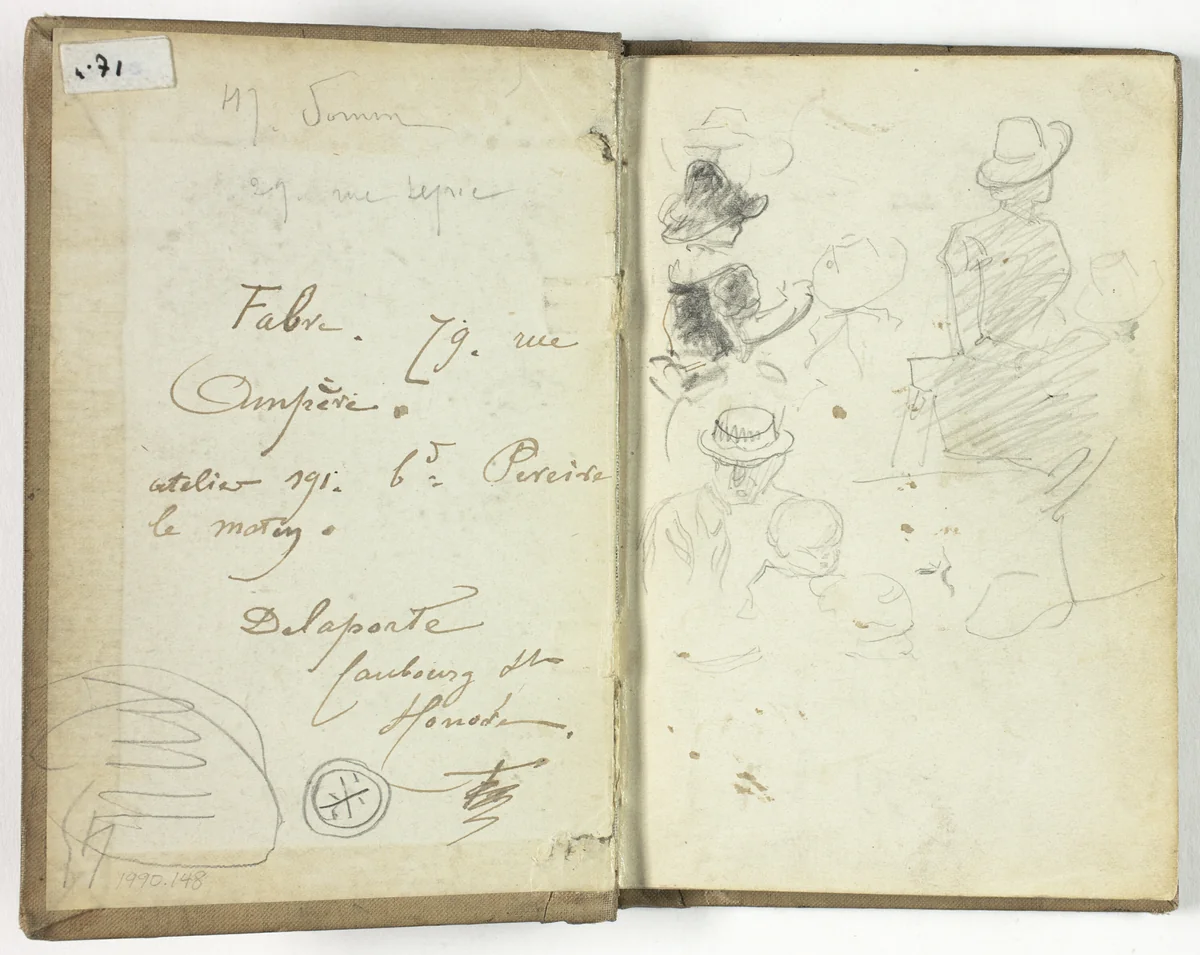 n. 71
Hy. Somm
29. rue Lepic
Fabre. 79. rue
Ampère.
atelier 191. bd Pereire
le matin.
Delaporte
faubourg St
Honoré.
1990.148